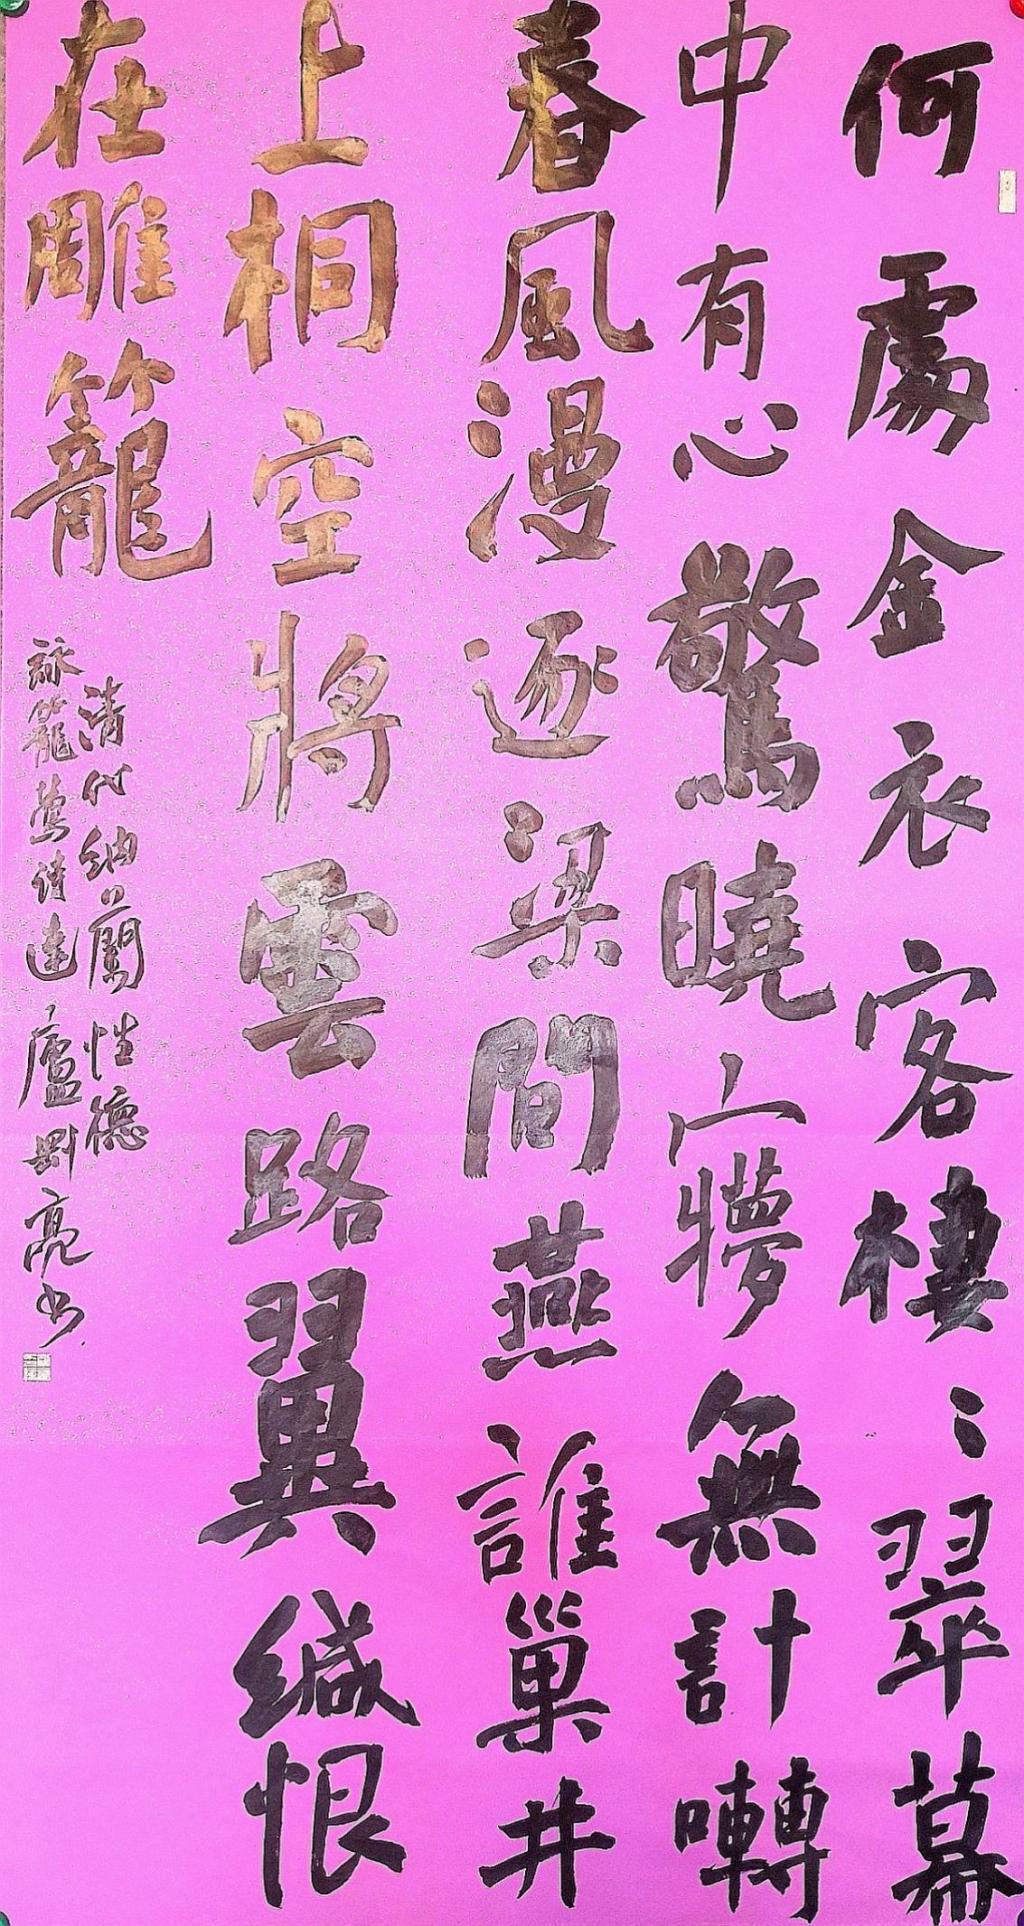 何處金衣客棲〻翠幕
中有心驚曉夢無計囀
春風漫逐梁間燕誰巢井
上桐空將雲路翼緘恨
在雕籠
清代納蘭性德
詠籠鶯詩達廬劉亮书